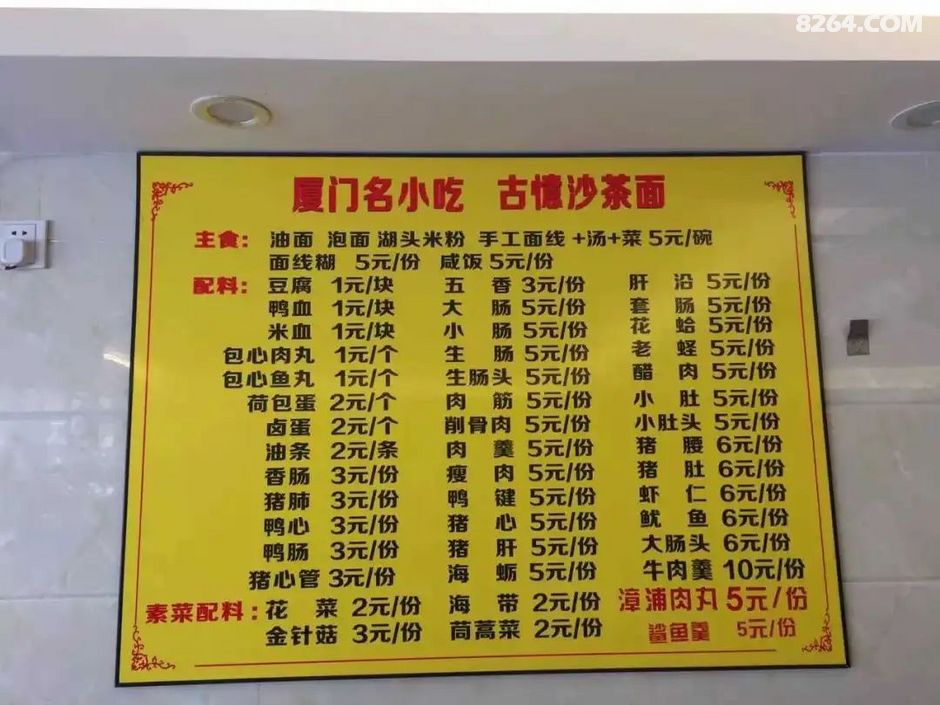 8264.COM
厦门名小吃 古憶沙茶面
主食: 油面 泡面 湖头米粉 手工面线+汤+菜 5元/碗
面线糊 5元/份 咸饭 5元/份
配料: 豆腐 1元/块 五香 3元/份 肝沿 5元/份
鸭血 1元/块 大肠 5元/份 套肠 5元/份
米血 1元/块 小肠 5元/份 花蛤 5元/份
包心肉丸 1元/个 生肠 5元/份 老蛏 5元/份
包心鱼丸 1元/个 生肠头 5元/份 醋肉 5元/份
荷包蛋 2元/个 肉筋 5元/份 小肚 5元/份
卤蛋 2元/个 削骨肉 5元/份 小肚头 5元/份
油条 2元/条 肉羹 5元/份 猪腰 6元/份
香肠 3元/份 瘦肉 5元/份 猪肚 6元/份
猪肺 3元/份 鸭键 5元/份 虾仁 6元/份
鸭心 3元/份 猪心 5元/份 鱿鱼 6元/份
鸭肠 3元/份 猪肝 5元/份 大肠头 6元/份
猪心管 3元/份 海蛎 5元/份 牛肉羹 10元/份
素菜配料: 花菜 2元/份 海带 2元/份 漳浦肉丸 5元/份
金针菇 3元/份 茼蒿菜 2元/份 鲨鱼羹 5元/份